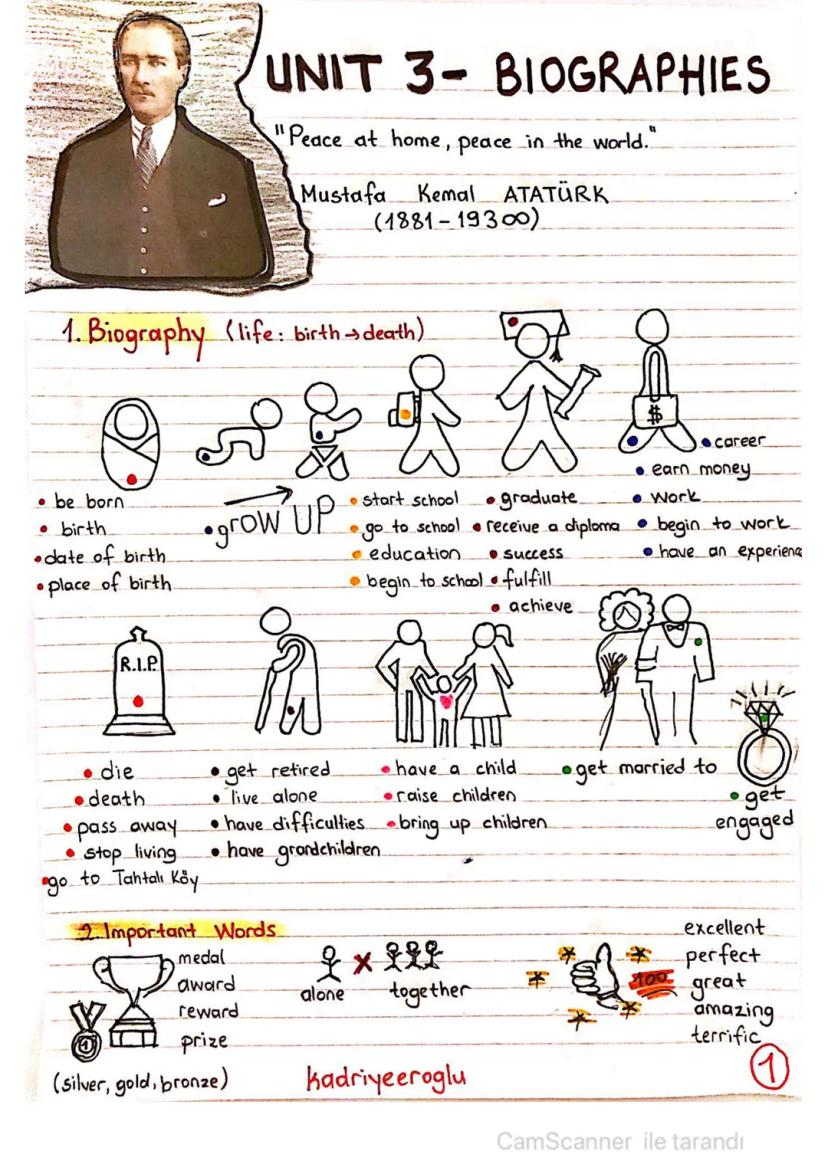 UNIT 3- BIOGRAPHIES
"Peace at home, peace in the world."
Mustafa Kemal ATATÜRK
(1881-193∞)
1. Biography (life: birth→death)
$
• be born
• birth
• date of birth
• place of birth
• grow UP
• start school
• go to school
• education
• begin to school
• graduate
• receive a diploma
• success
• fulfill
• achieve
• career
• earn money
• work
• begin to work
• have an experienc
R.I.P.
• die
• death
• pass away
• stop living
• go to Tahtalı Köy
• get retired
• live alone
• have difficulties
• have grandchildren
• have a child
• raise children
• bring up children
• get married to
• get
engaged
2. Important Words
medal
award
reward
prize
1
(silver, gold, bronze)
alone X together
100
excellent
perfect
great
amazing
terrific
kadriyeeroglu
1
CamScanner ile tarandı